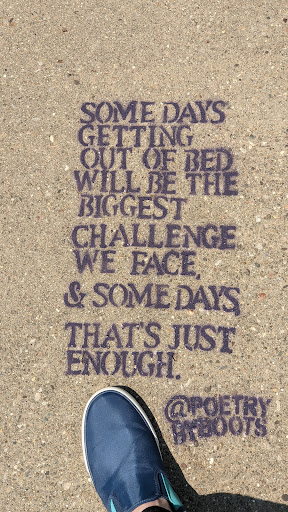 SOME DAYS
GETTING
OUT OF BED
WILL BE THE
BIGGEST
CHALLENGE
WE FACE,
& SOME DAYS,
THAT'S JUST
ENOUGH.
@POETRY
BYBOOTS